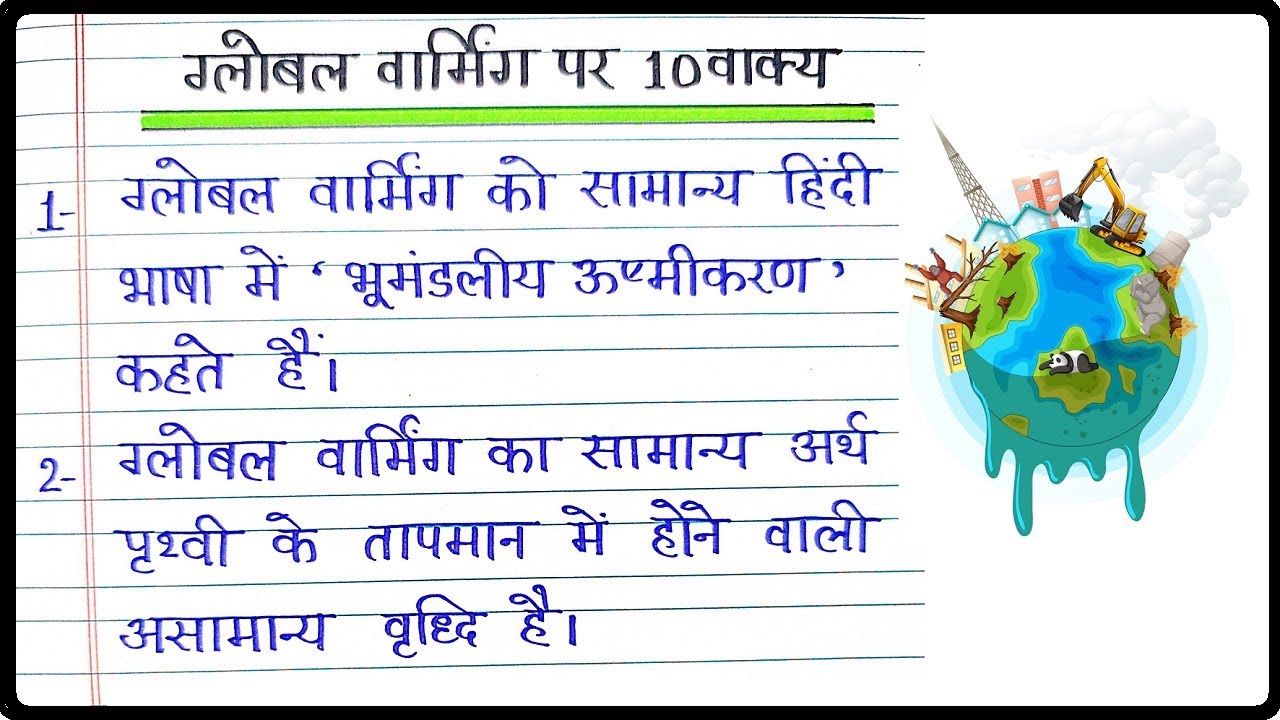 ग्लोबल वार्मिंग पर 10 वाक्य
1- ग्लोबल वार्मिंग को सामान्य हिंदी
भाषा में ‘भूमंडलीय ऊष्मीकरण’
कहते हैं।
2- ग्लोबल वार्मिंग का सामान्य अर्थ
पृथ्वी के तापमान में होने वाली
असामान्य वृध्दि है।